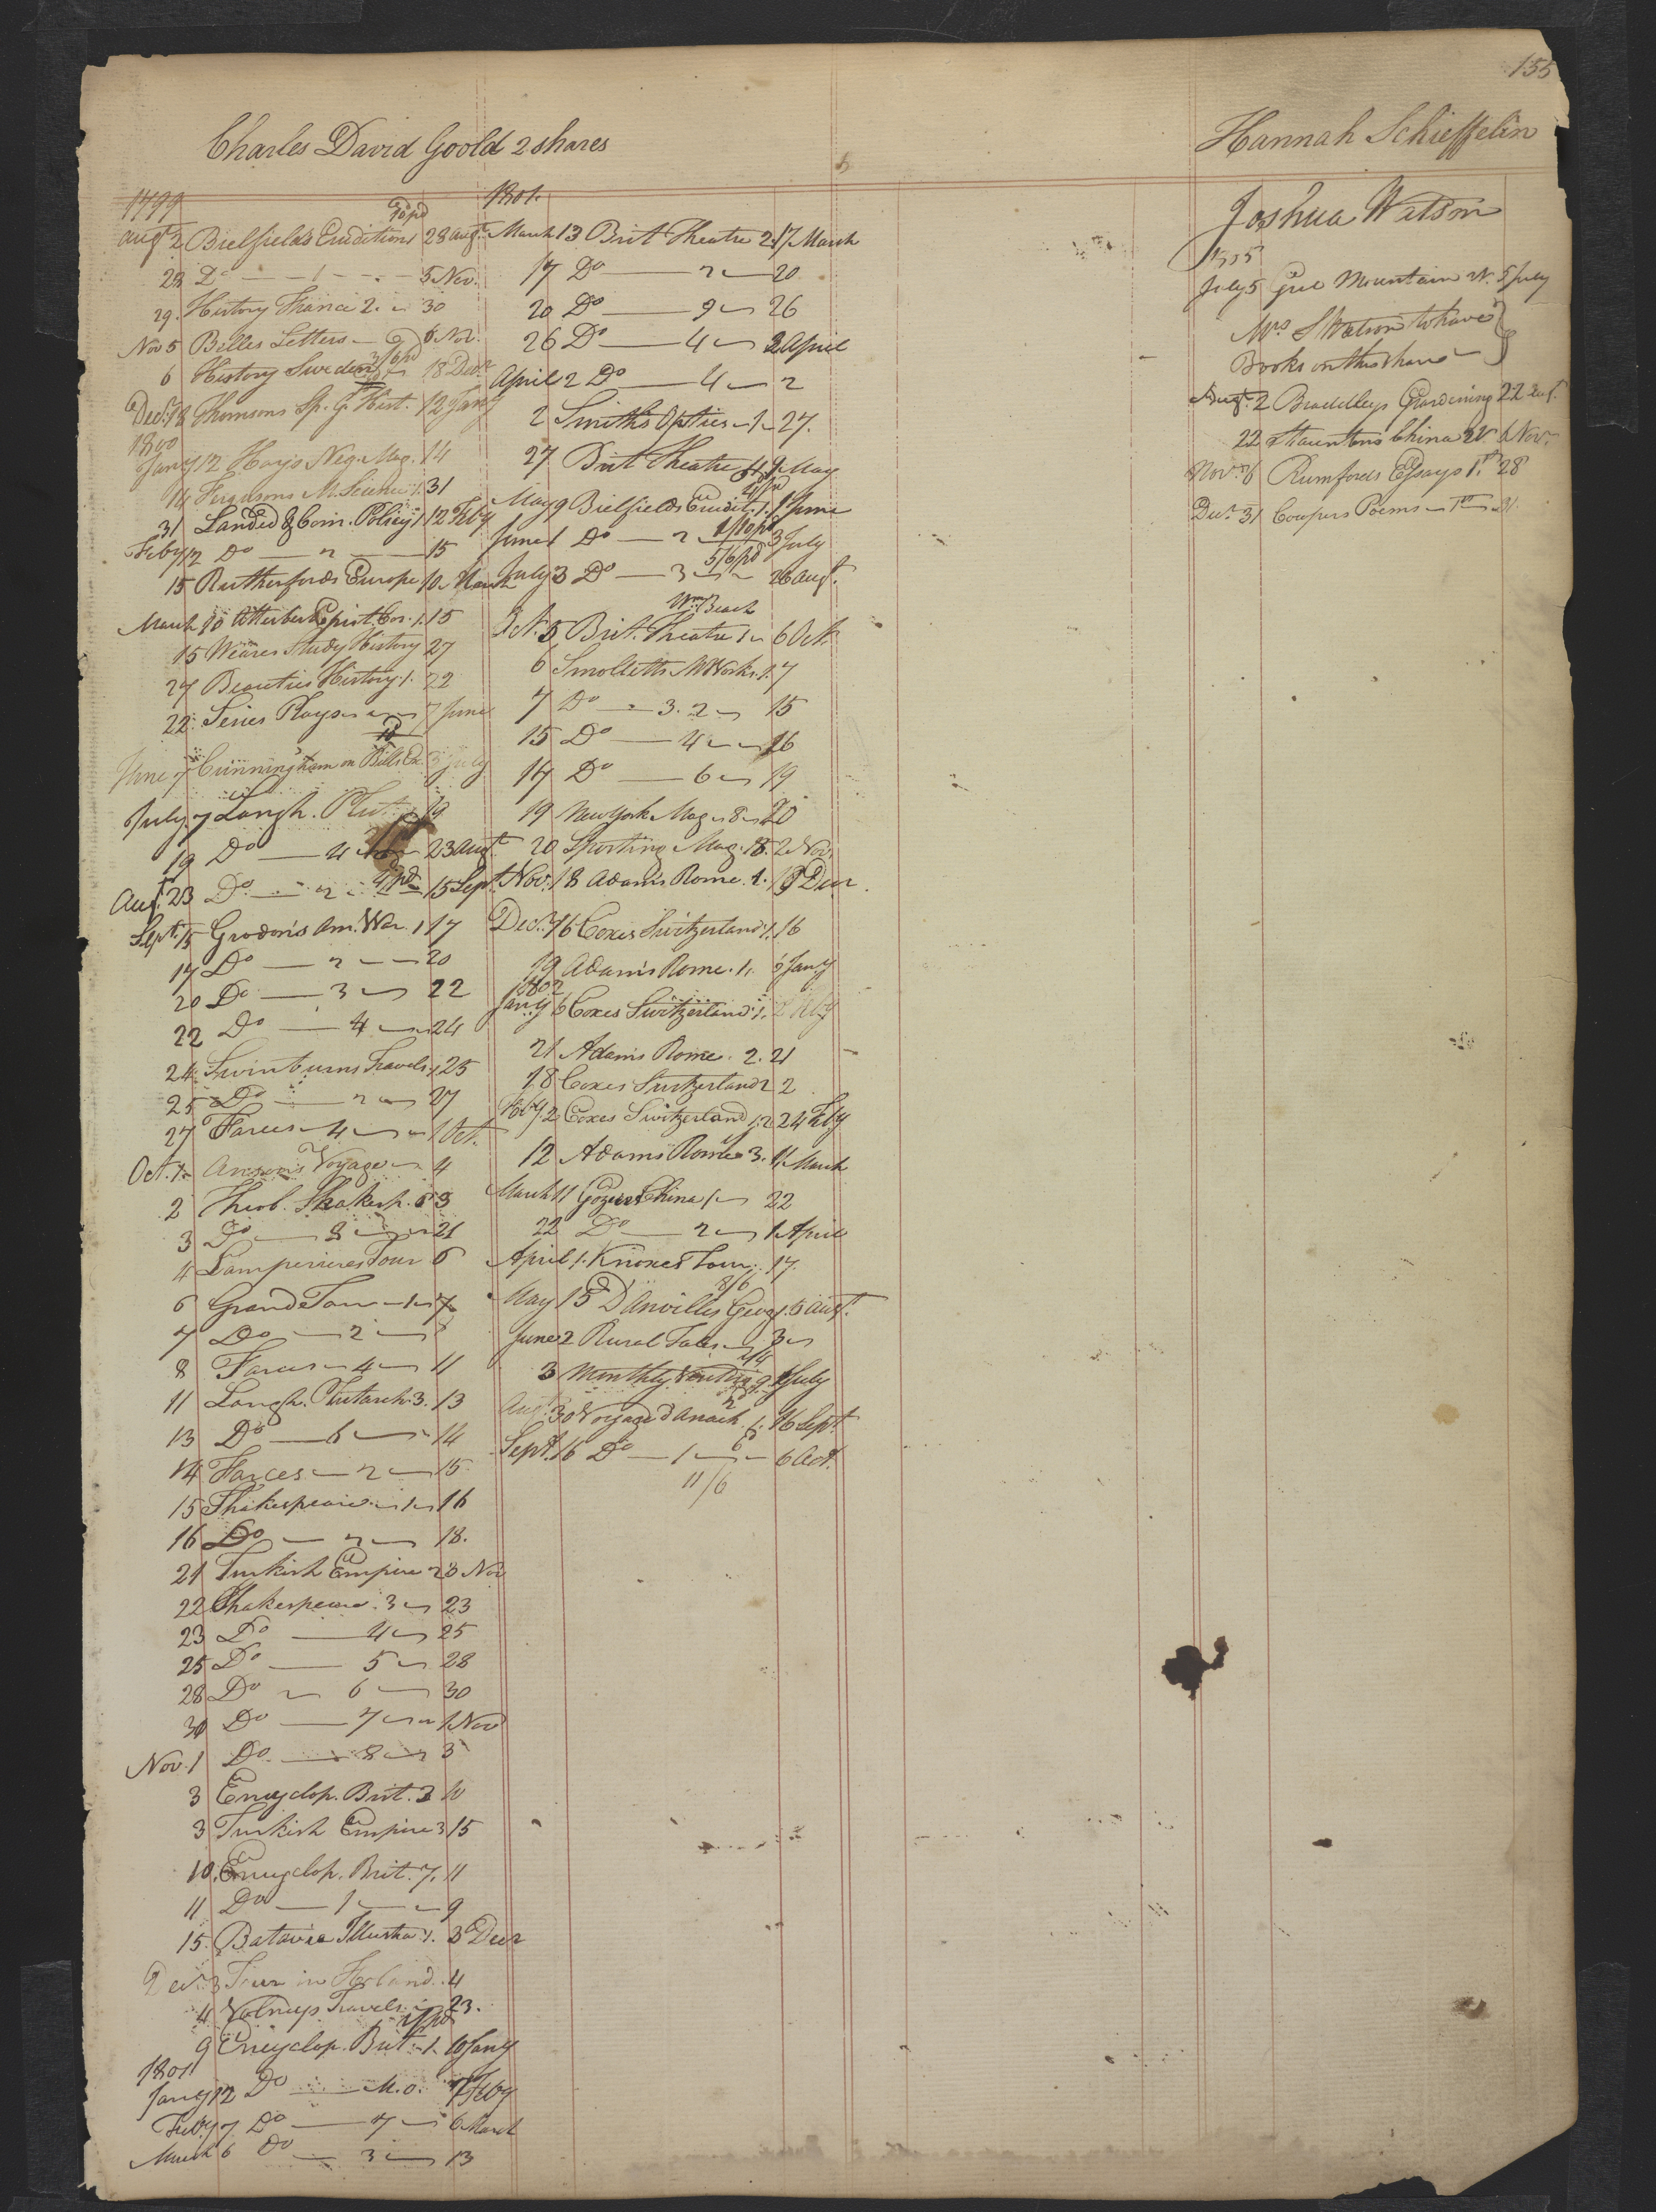 155
Charles David Goold 2 shares
1799
/10 pd
Augt 2 Bielfields Erudition 28 Augt
28 Do — 1 — 5 Nov.
29. History France 2. 30
Nov 5 Belles Letters 6 Nov.
3/6 pd
6 History Sweden 18 Decr
Decr 18 Thomsons Sp. G. Hist. 12 Jany
1800
Jany 12 Hays Neg. Mag. 14
14 Fergusons M. Science 1. 31
31 Landed & Com. Policy 1 12 Feby
Feby 12 Do — 2 — 15
15 Rutherfords Europe 10 March
March 10 Atterbury Epist. Cor. 1. 15
15 Weares Study History 27
27 Beauties History 1. 22
22 Series Plays 7 June
June 7 Cunningham on Bills Ex. 3 July
July 7 Langh. Plut. 19
19 Do — 4 — 23 Augt
Augt 23 Do — 2 — 15 Sept.
Sept. 15 Grodon's Am. War. 1 17
17 Do — 2 — 20
20 Do — 3 — 22
22 Do — 4 — 24
24 Swinburns Travels 1 25
25 Do — 2 — 27
27 Farces — 4 — 1 Oct.
Oct. 1 Anson's Voyage 4
2 Theob. Shakesp. 6 3
3 Do — 8 — 21
4 Lamperieres Tour 6
6 Grand Tour — 1 — 7
7 Do — 2 — 8
8 Farces — 4 — 11
11 Langh. Plutarch 3. 13
13 Do — 6 — 14
14 Farces — 2 — 15
15 Shakespeare — 1 — 16
16 Do — 2 — 18.
21 Turkish Empire 2 3 Nov
22 Shakespeare. 3 — 23
23 Do — 4 — 25
25 Do — 5 — 28
28 Do — 6 — 30
30 Do — 7 — 1 Nov
Nov. 1 Do — 8 — 3
3 Encyclop. Brit. 3 10
3 Turkish Empire 3 15
10. Encyclop. Brit. 7. 11
11 Do — 1 — 9
15. Batavie Illustra. 1. 3 Decr
Decr. 3 Tour in Holland. 4
4 Volneys Travels 23.
9 Encyclop. Brit. 1. 10 Jany
1801
Jany 12 Do — M.o. 7 Feby
Feby 7 Do — 7 — 6 March
March 6 Do — 3 — 13
1801.
March 13 Brit Theatre 2. 17 March
17 Do — 2 — 20
20 Do — 9 — 26
26 Do — 4 — 2 April
April 2 Do — 4 — 2
2 Smiths Optics — 1 — 27.
27 Brit Theatre 4 9 May
May 9 Bielfields Erudit. 1. 1 June
1/10 pd
June 1 Do — 2 — 3 July
5/6 pd
July 3 Do — 3 — 26 Augt.
Wm Beach
Oct. 5 Brit. Theatre 1 — 6 Oct.
6 Smolletts M Works. 1. 7
7 Do — 3. 2 — 15
15 Do — 4 — 16
17 Do — 6 — 19
19 New York Mag — 8 — 20
20 Sporting Mag. 18. 2 Nov.
Nov. 18 Adam's Rome. 1. 19 Decr.
Decr. 16 Coxes Switzerland 1. 16
19 Adam's Rome. 1. 6 Jany
1802
Jany 6 Coxes Switzerland 1. 2 Feby
21 Adams Rome. 2. 21
18 Coxes Switzerland 2 2
Feby 2 Coxes Switzerland 1. 2 24 Feby
12 Adams Rome 3. 11 March
March 11 Goziers China 1 — 22
22 Do — 2 — 1 April
April 1. Knoxes Tour. 17.
8/6
May 15 D'Anvilles Geog 1. 5 Augt.
June 2 Rural Tales — 3
3 Monthly 9 1 July
Augt. 30 Voyage d'Anach. 1. 16 Sept.
Sept. 16 Do — 1 — 6 Oct.
11/6
Hannah Schieffelin
Joshua Watson
July 5 Mountain 5 July
Mrs S Watson to have
Books on this share
Augt. 2 Braddleys Gardening 22 Augt.
22 Stauntons China 2V. 6 Nov.
Novr. 6 Rumfords Essays 1. 28
Decr. 31 Cowpers Poems — 31.